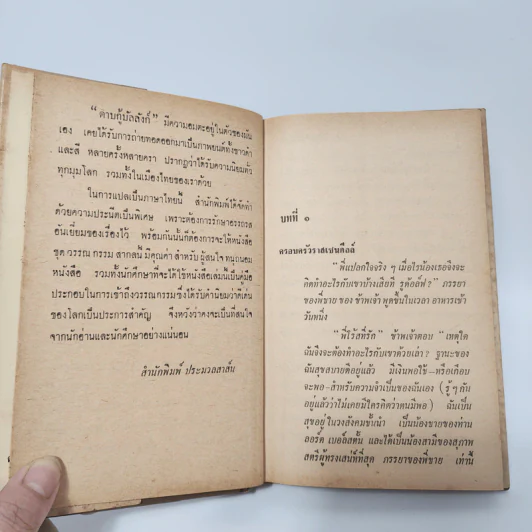 “ดาบกู้บัลลังก์” มีความอมตะอยู่ในตัวของมัน
เอง เคยได้รับการถ่ายทอดออกมาเป็นภาพยนต์ทั้งขาวดำ
และสี หลายครั้งหลายครา ปรากฏว่าได้รับความนิยมทั่ว
ทุกมุมโลก รวมทั้งในเมืองไทยของเราด้วย
ในการแปลเป็นภาษาไทยนี้ สำนักพิมพ์ได้จัดทำ
ด้วยความประนีตเป็นพิเศษ เพราะต้องการรักษาอรรถรส
อันเยี่ยมของเรื่องไว้ พร้อมกันนั้นก็ต้องการจะให้หนังสือ
ชุด วรรณ กรรม สากลนี้ มีคุณค่า สำหรับ ผู้สนใจ ทุกถนอม
หนังสือ รวมทั้งนักศึกษาที่จะได้ใช้หนังสือเล่มนี้เป็นคู่มือ
ประกอบในการเข้าถึงวรรณกรรมซึ่งได้รับคำนิยมว่าดีเด่น
ของโลกเป็นประการสำคัญ จึงหวังว่าคงจะเป็นที่สนใจ
จากนักอ่านและนักศึกษาอย่างแน่นอน
สำนักพิมพ์ ประมวลสาส์น
บทที่ ๑
ครอบครัวราสเซนดิลล์
“พี่แปลกใจจริง ๆ เมื่อไรน้องเธอจึงจะ
คิดทำอะไรกับเขาบ้างเสียที รูดอล์ฟ?” ภรรยา
ของพี่ชาย ของ ข้าพเจ้า พูดขึ้นในเวลา อาหารเช้า
วันหนึ่ง
“พี่โรส์ที่รัก” ข้าพเจ้าตอบ “เหตุใด
ฉันจึงจะต้องทำอะไรกับเขาด้วยเล่า? ฐานะของ
ฉันสุขสบายดีอยู่แล้ว มีเงินพอใช้-หรือเกือบ
จะพอ-สำหรับความจำเป็นของฉันเอง (รู้ ๆ กัน
อยู่แล้วว่าไม่เคยมีใครคิดว่าตนมีพอ) ฉันเป็น
สุขอยู่ในวงสังคมชั้นนำ เป็นน้องชายของท่าน
ลอร์ด เบอล์สดั้น และได้เป็นน้องสามีของสุภาพ
สตรีผู้ทรงเสน่ห์ที่สุด ภรรยาของพี่ชาย เท่านี้